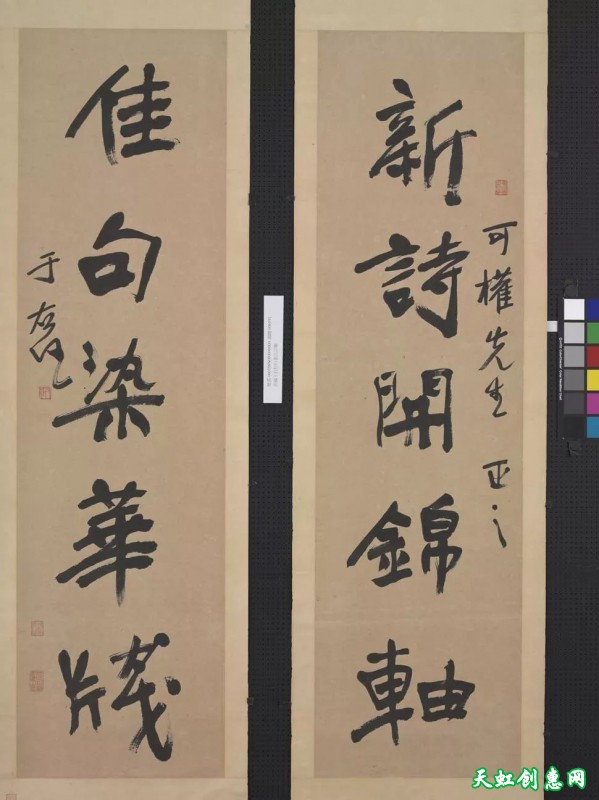 新詩開錦軸
可權先生 正之
佳句染華牋
于右任
天虹创惠网